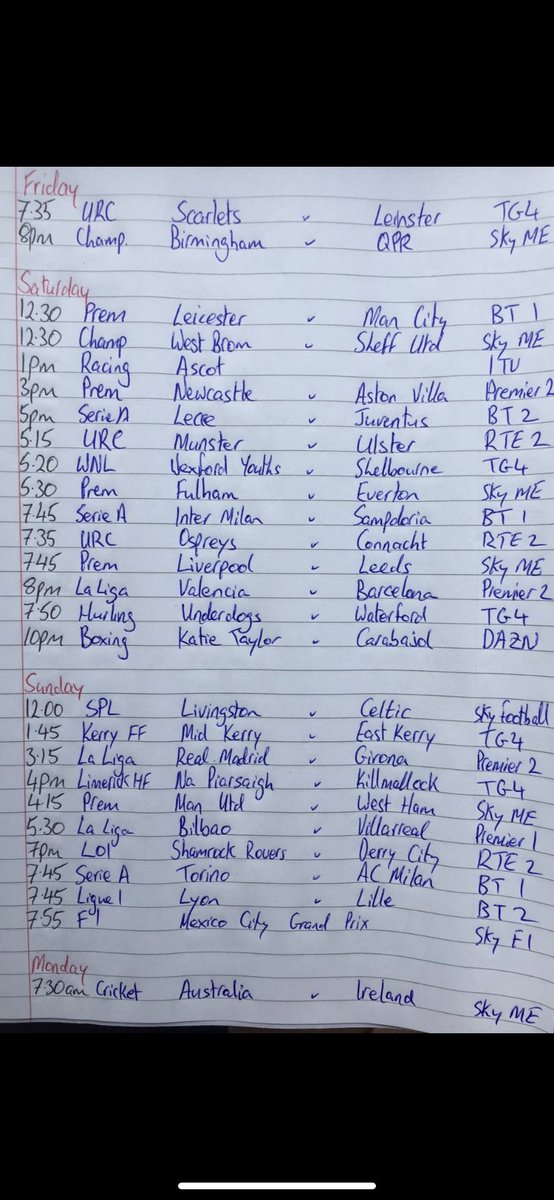 Friday
7.35 URC Scarlets v Leinster TG4
8pm Champ. Birmingham v QPR Sky ME
Saturday
12.30 Prem Leicester v Man City BT 1
12.30 Champ West Brom v Sheff Utd Sky ME
1pm Racing Ascot ITV
3pm Prem Newcastle v Aston Villa Premier 2
5pm Serie A Lecce v Juventus BT 2
5.15 URC Munster v Ulster RTE 2
5.20 WNL Wexford Youths v Shelbourne TG4
5.30 Prem Fulham v Everton Sky ME
7.45 Serie A Inter Milan v Sampdoria BT 1
7.35 URC Ospreys v Connacht RTE 2
7.45 Prem Liverpool v Leeds Sky ME
8pm La Liga Valencia v Barcelona Premier 2
7.50 Hurling Underdogs v Waterford TG4
10pm Boxing Katie Taylor v Carabajal DAZN
Sunday
12.00 SPL Livingston v Celtic Sky Football
1.45 Kerry FF Mid Kerry v East Kerry TG4
3.15 La Liga Real Madrid v Girona Premier 2
4pm Limerick HF Na Piarsaigh v Killmallock TG4
4.15 Prem Man Utd v West Ham Sky ME
5.30 La Liga Bilbao v Villarreal Premier 1
7pm LOI Shamrock Rovers v Derry City RTE 2
7.45 Serie A Torino v AC Milan BT 1
7.45 Ligue 1 Lyon v Lille BT 2
7.55 F1 Mexico City Grand Prix Sky F1
Monday
7.30am Cricket Australia v Ireland Sky ME